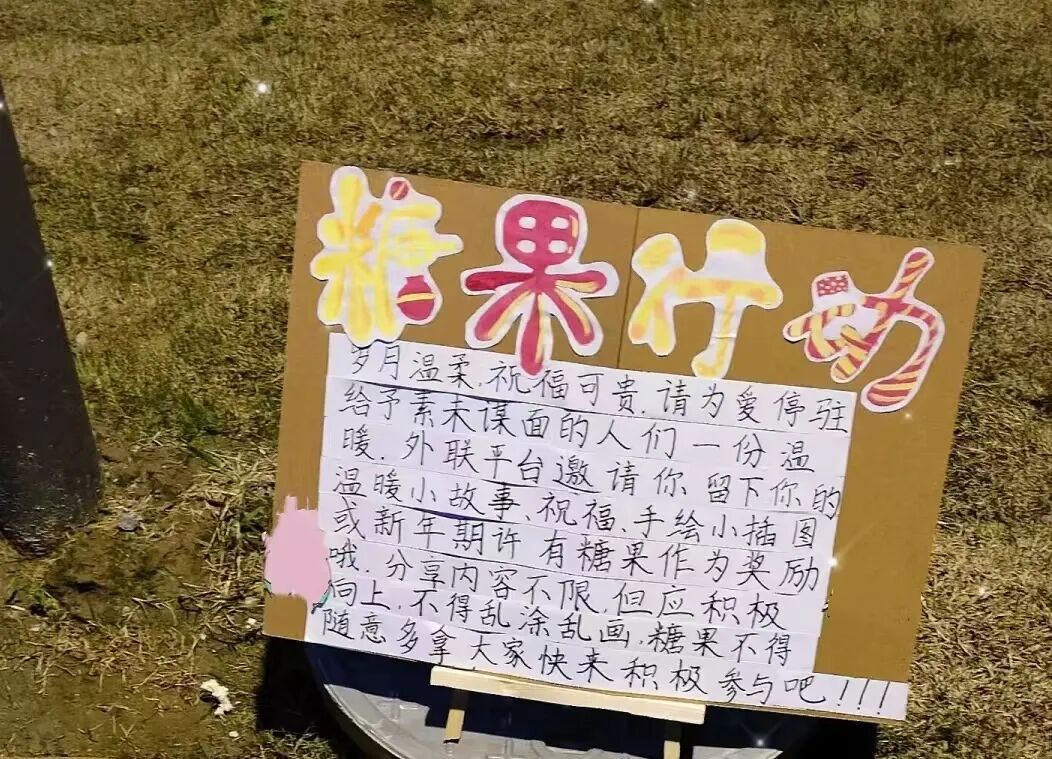 糖果行动
岁月温柔,祝福可贵,请为爱停驻
给予素未谋面的人们一份温
暖.外联平台邀请你留下你的
温暖小故事、祝福、手绘小插图
或新年期许 有糖果作为奖励
哦.分享内容不限,但应积极
向上,不得乱涂乱画,糖果不得
随意多拿 大家快来积极参与吧!!!